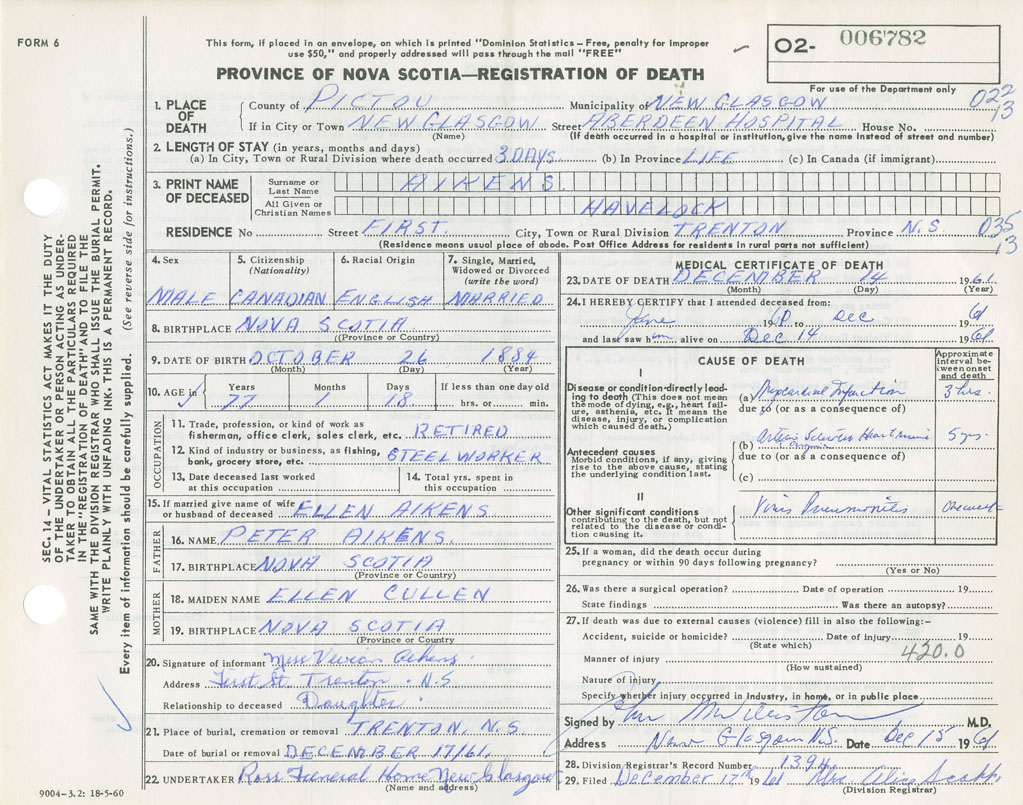 FORM 6
This form, if placed in an envelope, on which is printed "Dominion Statistics – Free, penalty for improper
use $50," and properly addressed will pass through the mail "FREE"
02- 006782
PROVINCE OF NOVA SCOTIA—REGISTRATION OF DEATH
For use of the Department only
1. PLACE OF DEATH
County of PICTOU Municipality of NEW GLASGOW 022
If in City or Town NEW GLASGOW Street ABERDEEN HOSPITAL House No. 13
(Name) (If death occurred in a hospital or institution, give the name instead of street and number)
2. LENGTH OF STAY (in years, months and days)
(a) In City, Town or Rural Division where death occurred 3 DAYS (b) In Province LIFE (c) In Canada (if immigrant)
3. PRINT NAME OF DECEASED
Surname or Last Name AIKENS
All Given or Christian Names HAVELOCK
RESIDENCE No Street FIRST City, Town or Rural Division TRENTON Province N.S 035
(Residence means usual place of abode. Post Office Address for residents in rural parts not sufficient) 13
4. Sex
MALE
5. Citizenship (Nationality)
CANADIAN
6. Racial Origin
ENGLISH
7. Single, Married, Widowed or Divorced (write the word)
MARRIED
8. BIRTHPLACE NOVA SCOTIA
(Province or Country)
9. DATE OF BIRTH OCTOBER 26 1884
(Month) (Day) (Year)
10. AGE in
Years Months Days If less than one day old
77 1 18 hrs. or min.
OCCUPATION
11. Trade, profession, or kind of work as
fisherman, office clerk, sales clerk, etc. RETIRED
12. Kind of industry or business, as fishing,
bank, grocery store, etc. STEEL WORKER
13. Date deceased last worked at this occupation
14. Total yrs. spent in this occupation
15. If married give name of wife
or husband of deceased ELLEN AIKENS
FATHER
16. NAME PETER AIKENS.
17. BIRTHPLACE NOVA SCOTIA
(Province or Country)
MOTHER
18. MAIDEN NAME ELLEN CULLEN
19. BIRTHPLACE NOVA SCOTIA
(Province or Country
20. Signature of informant Miss Vivian Aikens
Address First St. Trenton. N.S
Relationship to deceased Daughter
21. Place of burial, cremation or removal TRENTON, N.S.
Date of burial or removal DECEMBER 17/61
22. UNDERTAKER Ross Funeral Home New Glasgow
(Name and address)
MEDICAL CERTIFICATE OF DEATH
23. DATE OF DEATH DECEMBER 14 1961
(Month) (Day) (Year)
24. I HEREBY CERTIFY that I attended deceased from:
June 19 to Dec 1961
and last saw him alive on Dec 14 1961
CAUSE OF DEATH
Approximate interval between onset and death
I
Disease or condition directly leading to death (This does not mean the mode of dying, e.g., heart failure, asthenia, etc. It means the disease, injury, or complication which caused death.)
(a) Myocardial Infarction 3 hrs.
due to (or as a consequence of)
Antecedent causes
Morbid conditions, if any, giving rise to the above cause, stating the underlying condition last.
(b) Arterio Sclerotic Heart 5 yrs.
due to (or as a consequence of)
(c)
II
Other significant conditions
contributing to the death, but not related to the disease or condition causing it.
Virus Pneumonitis One week
25. If a woman, did the death occur during
pregnancy or within 90 days following pregnancy?
(Yes or No)
26. Was there a surgical operation? Date of operation 19
State findings Was there an autopsy?
27. If death was due to external causes (violence) fill in also the following:–
Accident, suicide or homicide? Date of injury 19
(State which)
420.0
Manner of injury
(How sustained)
Nature of injury
Specify whether injury occurred in Industry, in home, or in public place
Signed by M.D.
Address New Glasgow N.S. Date Dec 15 1961
28. Division Registrar's Record Number 1394
29. Filed December 17th 1961 Mrs Alice Scott
(Division Registrar)
SEC. 14 – VITAL STATISTICS ACT MAKES IT THE DUTY
OF THE UNDERTAKER OR PERSON ACTING AS UNDER-
TAKER TO OBTAIN ALL THE PARTICULARS REQUIRED
IN THE "REGISTRATION OF DEATH" AND TO FILE THE
SAME WITH THE DIVISION REGISTRAR WHO SHALL ISSUE THE BURIAL PERMIT.
WRITE PLAINLY WITH UNFADING INK. THIS IS A PERMANENT RECORD.
Every item of information should be carefully supplied. (See reverse side for instructions.)
9004–3.2: 18-5-60